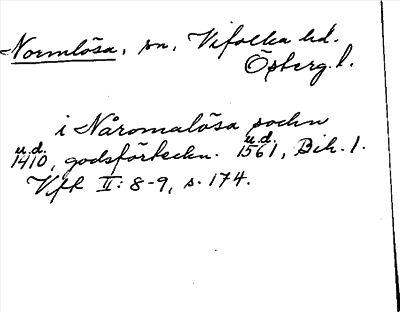 Normlösa, sn, Vifolka hd.
Östergl.
i Nåromalösa sockn
u.d. 1410, godsförteckn. u.d. 1561, Bih. 1.
Vft II: 8-9, s. 174.